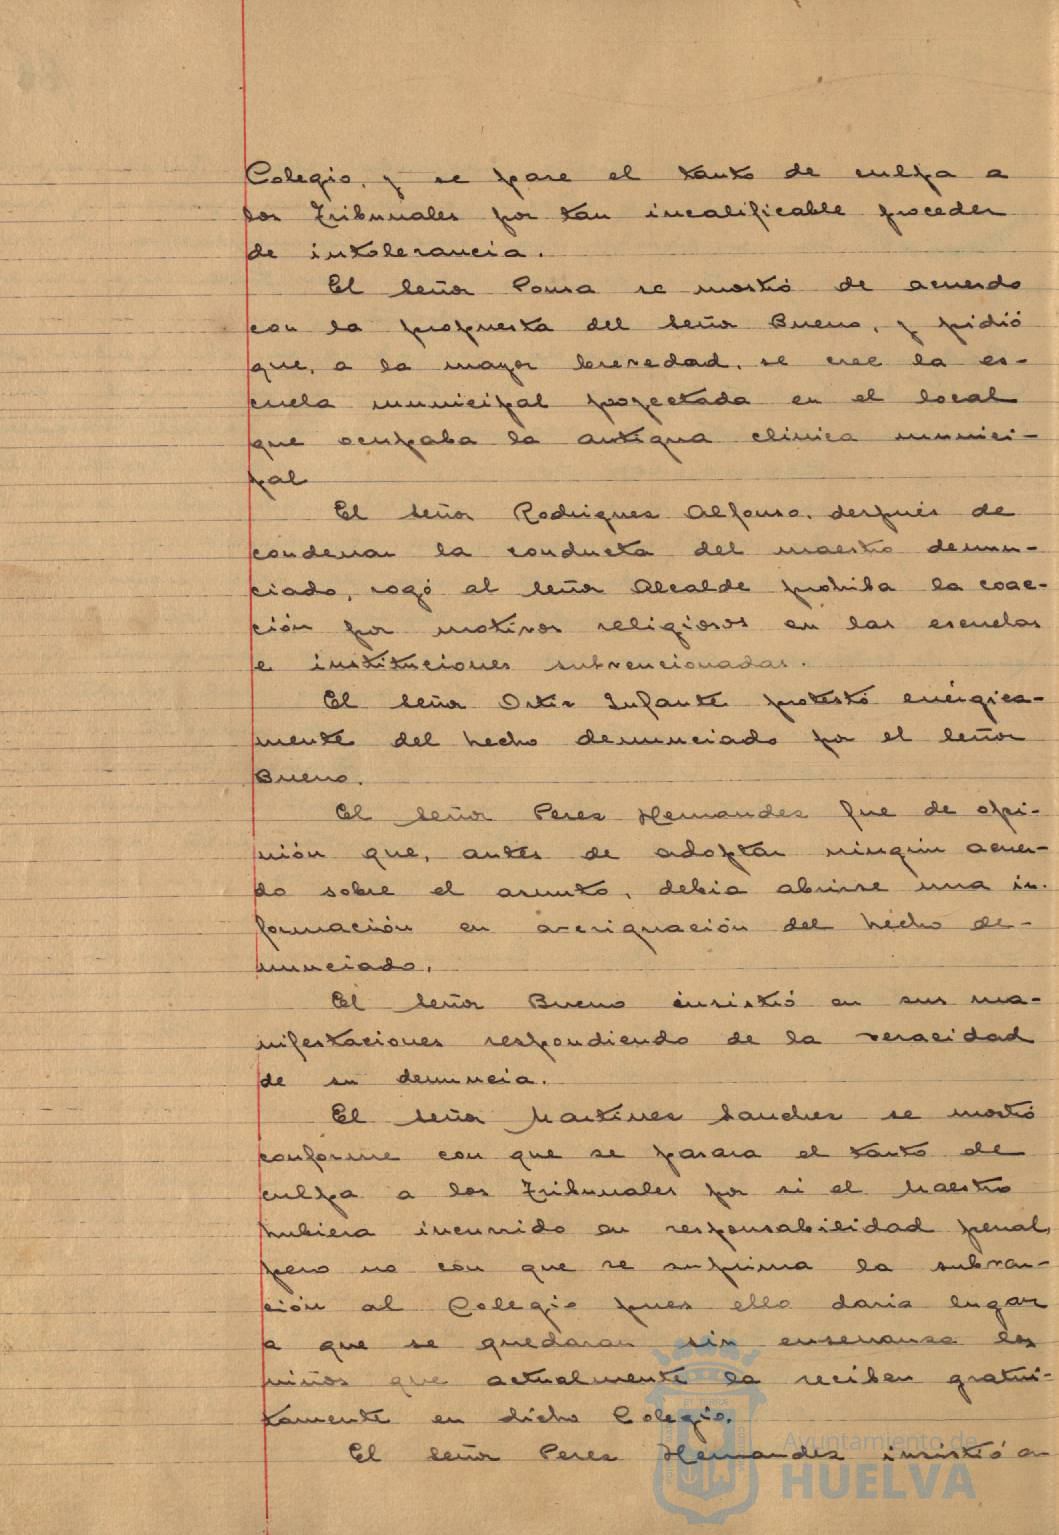 Colegio, y se pase el tanto de culpa a
los Tribunales por tan incalificable proceder
de intolerancia.
El señor Ponsa se mostró de acuerdo
con la propuesta del señor Bueno, y pidió
que, a la mayor brevedad, se cree la es-
cuela municipal proyectada en el local
que ocupaba la antigua clinica munici-
pal
El señor Rodriguez Alfonso, después de
condenar la conducta del maestro denun-
ciado, rogó al señor Alcalde prohiba la coac-
ción por motivos religiosos en las escuelas
e instituciones subvencionadas.
El señor Ortiz Infante protestó enérgica-
mente del hecho denunciado por el señor
Bueno.
El señor Perez Hernandez fue de opi-
nión que, antes de adoptar ningún acuer-
do sobre el asunto, debia abrirse una in-
formación en averiguación del hecho de-
nunciado.
El señor Bueno insistió en sus ma-
nifestaciones respondiendo de la veracidad
de su denuncia.
El señor Martinez Sanchez se mostró
conforme con que se pasara el tanto de
culpa a los Tribunales por si el Maestro
hubiera incurrido en responsabilidad penal,
pero no con que se suprima la subven-
ción al Colegio pues ello daria lugar
a que se quedaran sin enseñanza los
niños que actualmente la reciben gratui-
tamente en dicho Colegio.
El señor Perez Hernandez insistió en
Ayuntamiento de
HUELVA